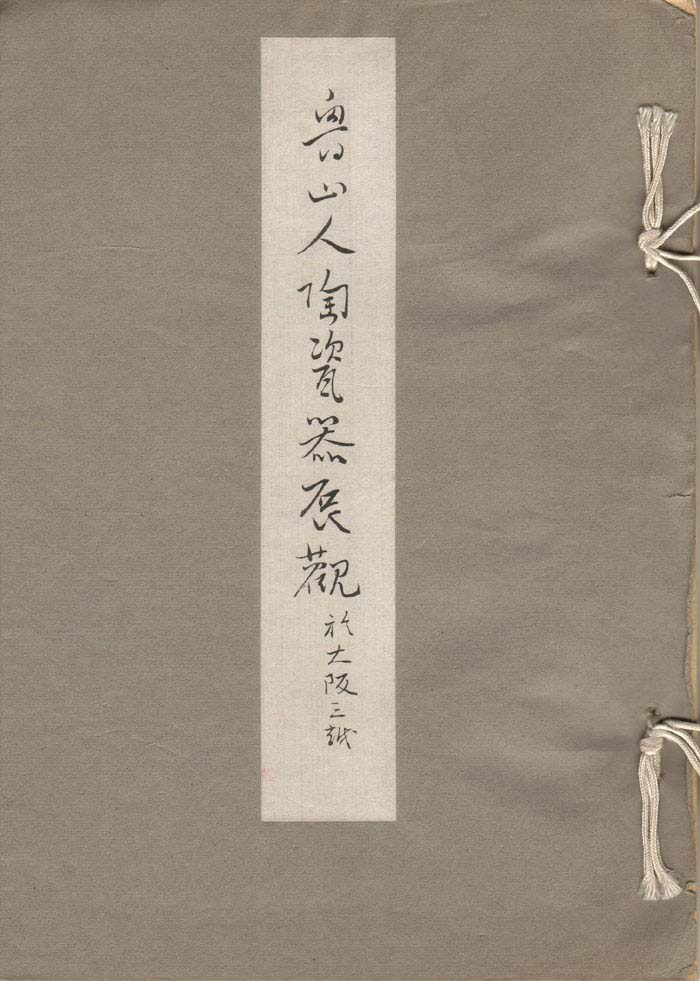 魯山人陶瓷器展觀
於大阪三越